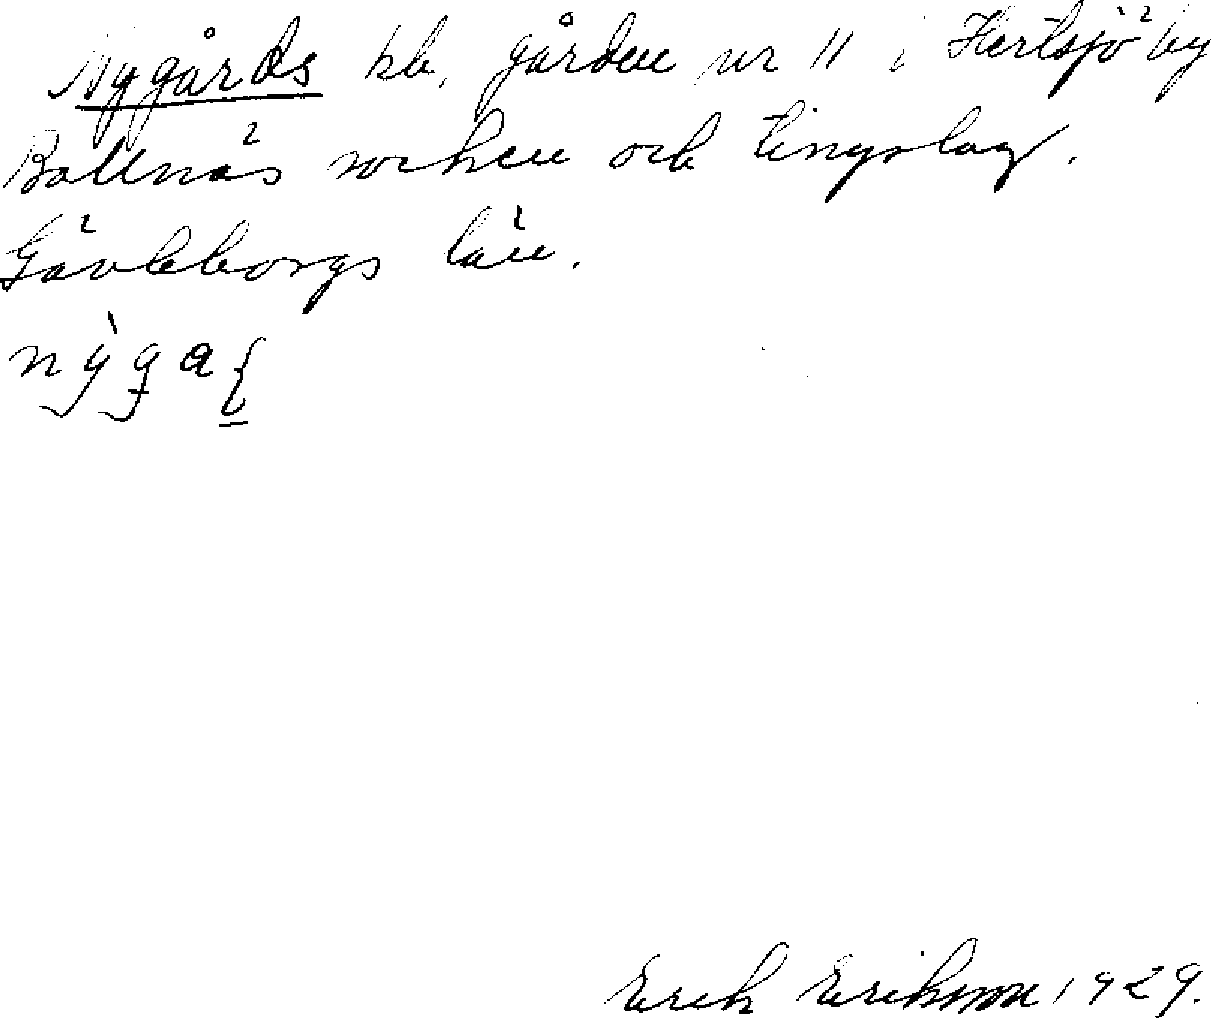 Nygårds kb, gården nr 11 i Hertsjö by
Bollnäs socken och tingslag.
Gävleborgs län.
Erik Eriksson 1929.